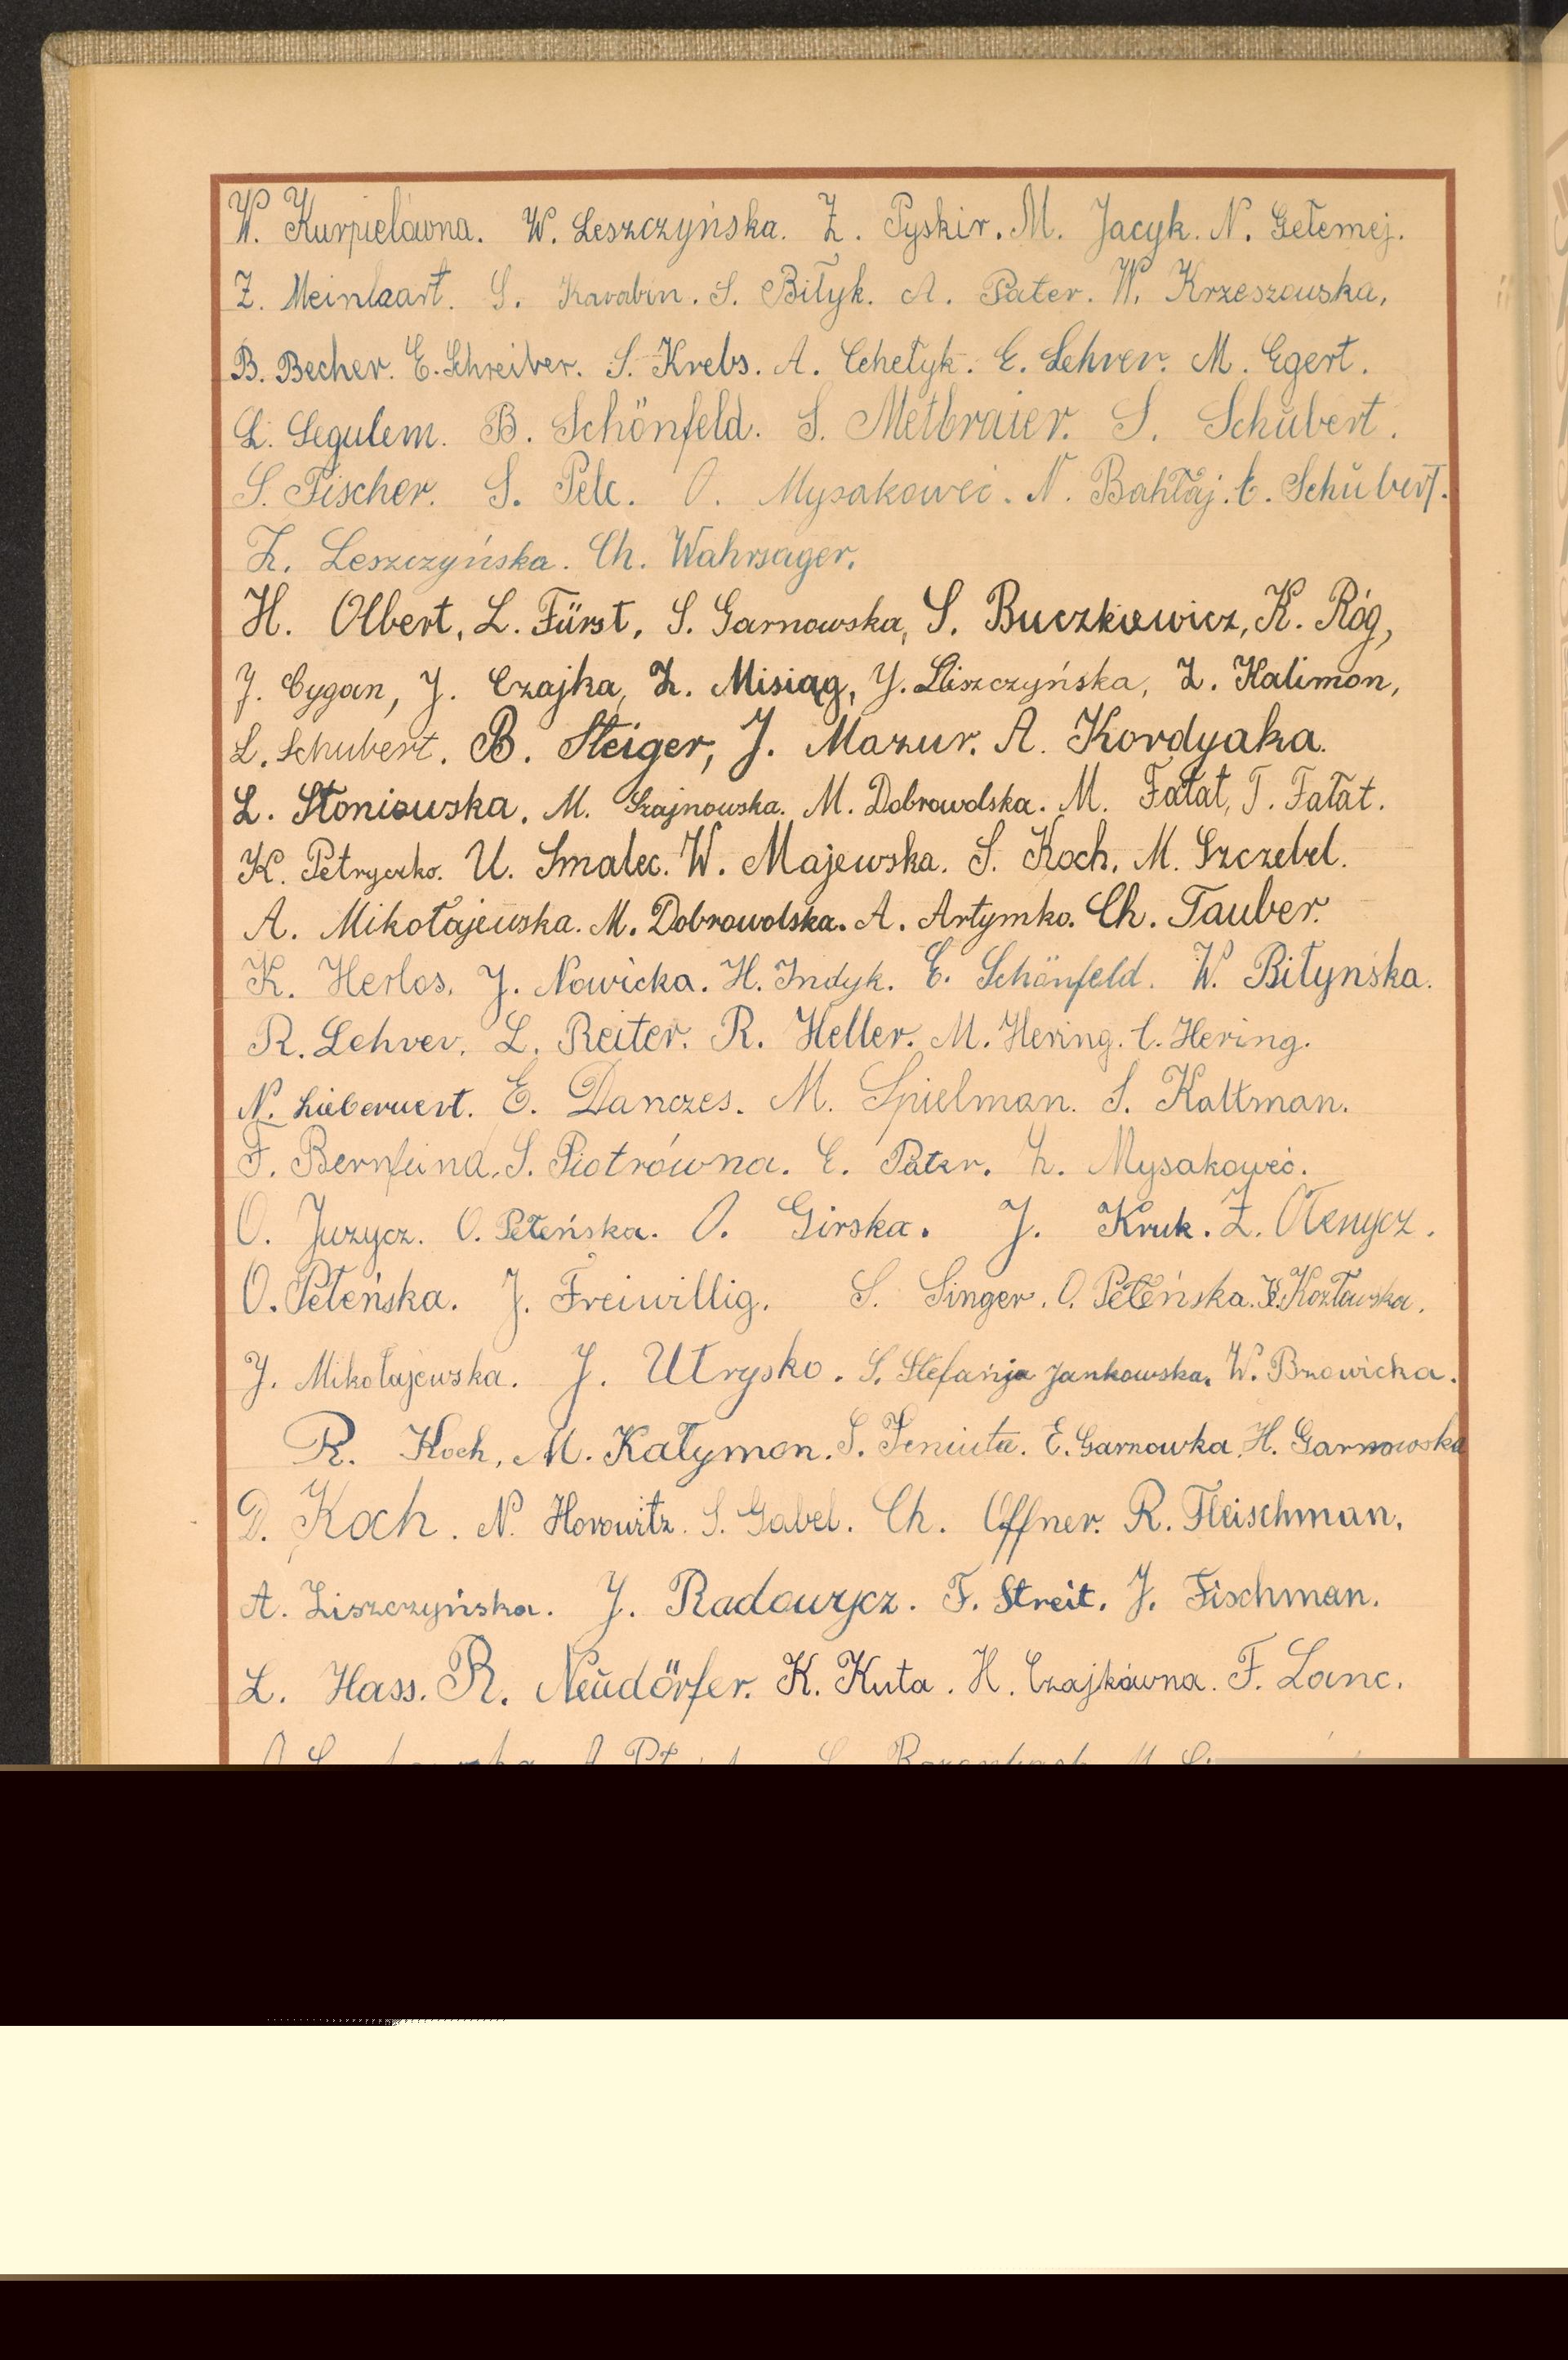 W. Kurpielówna. W. Leszczyńska. Z. Pyskir. M. Jacyk. N. Gełemej.
Z. Meinlaart. S. Karabin. S. Biłyk. A. Pater. W. Krzeszowska,
B. Becher. E. Schreiber. S. Krebs. A. Chełyk. E. Lehrer. M. Egert.
L. Segulem. B. Schönfeld. S. Metbraier. S. Schŭbert.
S. Fischer. S. Pelc. O. Mysakoweć. N. Bahłaj. E. Schŭbert.
Z. Leszczyńska. Ch. Wahrsager.
H. Olbert, L. Fürst, S. Garnowska, S. Buczkiewicz, K. Róg,
J. Cygan, J. Czajka, Z. Misiąg, J. Liszczyńska, Z. Kalimon,
L. Schubert. B. Steiger, J. Mazur. A. Kordyaka.
L. Słoniowska. M. Szajnowska. M. Dobrowolska. M. Fałat, T. Fałat.
K. Petryczko. U. Smalec. W. Majewska. S. Koch. M. Szczebel.
A. Mikołajewska. M. Dobrowolska. A. Artymko. Ch. Tauber.
K. Herlos. J. Nowicka. H. Indyk. E. Schönfeld. W. Biłyńska.
R. Lehrer. L. Reiter. R. Heller. M. Hering. C. Hering.
N. E. Danczes. M. Spielman. S. Kaltman.
F. Bernfeind. S. Piotrówna. E. Pater. Z. Mysakoweć.
O. Juzycz. O. Pełeńska. O. Girska. J. Kruk. Z. Ołenycz.
O. Pełeńska. J. Freiwillig. S. Singer. O. Pełeńska. Kozłowska.
J. Mikołajewska. J. Utrysko. S. Stefanja Jankowska. W. Bzowicka.
R. Koch, M. Kałymon. S. Seniuta. E. Garnowka. H. Garnowska
D. Koch. N. Horowitz. S. Gabel. Ch. Offner. R. Fleischman.
A. Liszczyńska. J. Radowycz. F. Streit. J. Fischman.
L. Hass. R. Neŭdörfer. K. Kuta. H. Czajkówna. F. Lanc.